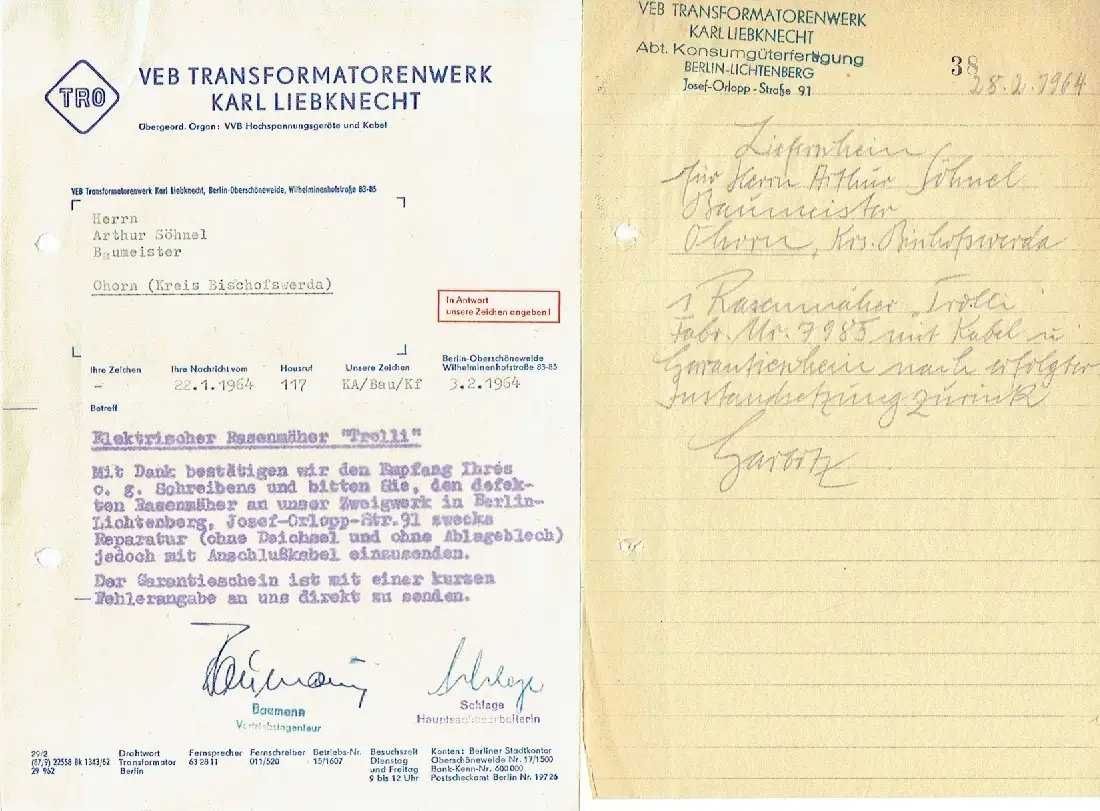 TRO
VEB TRANSFORMATORENWERK
KARL LIEBKNECHT
Übergeord. Organ: VVB Hochspannungsgeräte und Kabel
VEB Transformatorenwerk Karl Liebknecht, Berlin-Oberschöneweide, Wilhelminenhofstraße 83-85
Herrn
Arthur Söhnel
Baumeister
Ohorn (Kreis Bischofswerda)
In Antwort
unsere Zeichen angeben!
Ihre Zeichen Ihre Nachricht vom Hausruf Unsere Zeichen Berlin-Oberschöneweide
Wilhelminenhofstraße 83-85
- 22.1.1964 117 KA/Bau/Kf 3.2.1964
Betreff
Elektrischer Rasenmäher "Trolli"
Mit Dank bestätigen wir den Empfang Ihres
o. g. Schreibens und bitten Sie, den defek-
ten Rasenmäher an unser Zweigwerk in Berlin-
Lichtenberg, Josef-Orlopp-Str.91 zwecks
Reparatur (ohne Deichsel und ohne Ablageblech)
jedoch mit Anschlußkabel einzusenden.
Der Garantieschein ist mit einer kurzen
Fehlerangabe an uns direkt zu senden.
Baumann
Vertriebsingenieur
Schlage
Hauptsachbearbeiterin
29/2
(87/9) 22558 Bk 1343/62
29 962
Drahtwort
Transformator
Berlin
Fernsprecher
63 28 11
Fernschreiber
011/520
Betriebs-Nr.
15/1607
Besuchszeit
Dienstag
und Freitag
9 bis 12 Uhr
Konten: Berliner Stadtkontor
Oberschöneweide Nr. 17/1500
Bank-Kenn-Nr. 600000
Postscheckamt Berlin Nr. 19726
VEB TRANSFORMATORENWERK
KARL LIEBKNECHT
Abt. Konsumgüterfertigung
BERLIN-LICHTENBERG
Josef-Orlopp-Straße 91
38
28.2.1964
Lieferschein
für Herrn Arthur Söhnel
Baumeister
Ohorn, Krs. Bischofswerda
1 Rasenmäher „Trolli"
Fabr. Nr. 7985 mit Kabel u
Garantieschein nach erfolgter
Instandsetzung zurück